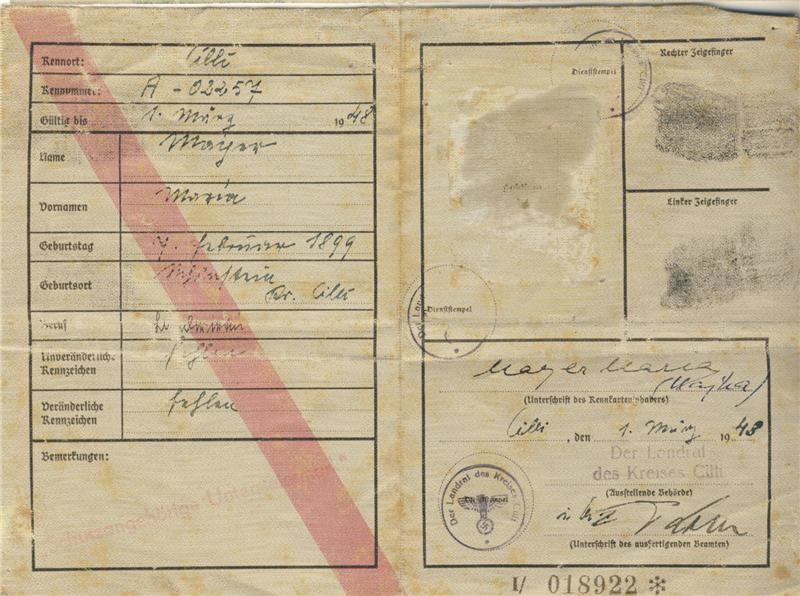 Kennort: Cilli
Kennummer: A - 02257
Gültig bis 1. März 1948
Name Mayer
Vornamen Maria
Geburtstag 7. Februar 1899
Geburtsort
Kr. Cilli
Beruf
Unveränderliche Kennzeichen fehlen
Veränderliche Kennzeichen fehlen
Bemerkungen:
"Schutzangehörige Untersteiermark"
Dienststempel
Rechter Zeigefinger
Linker Zeigefinger
Dienststempel
Mayer Maria
(Unterschrift des Kennkarteninhabers)
Cilli, den 1. März 1943
Der Landrat
des Kreises Cilli
(Ausstellende Behörde)
Der Landrat des Kreises Cilli
(Unterschrift des ausfertigenden Beamten)
I/ 018922 *